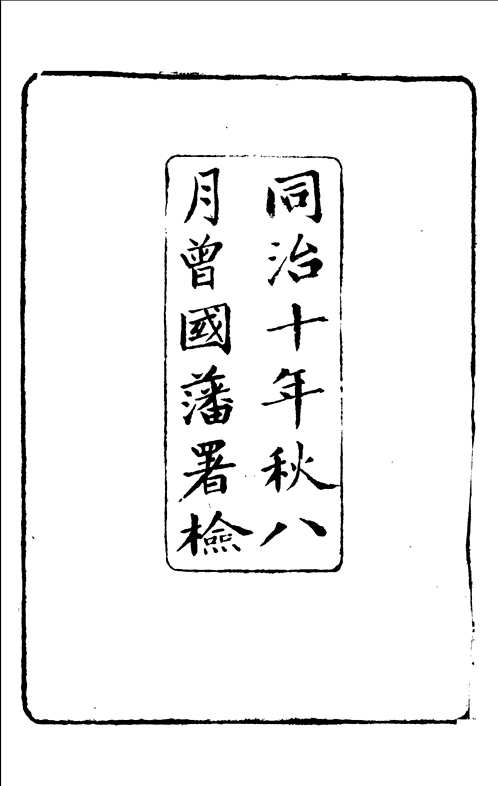 同治十年秋八
月曾國藩署檢